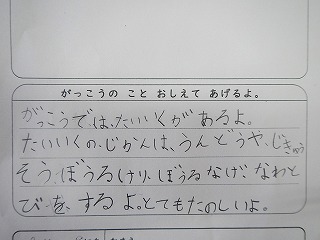 がっこうの こと おしえて あげるよ。
がっこうでは、たいいくが あるよ。
たいいくの、じかんは、うんどうや、じきゅう
そう、ぼうるけり、ぼうるなげ、なわと
びを、するよ。とてもたのしいよ。